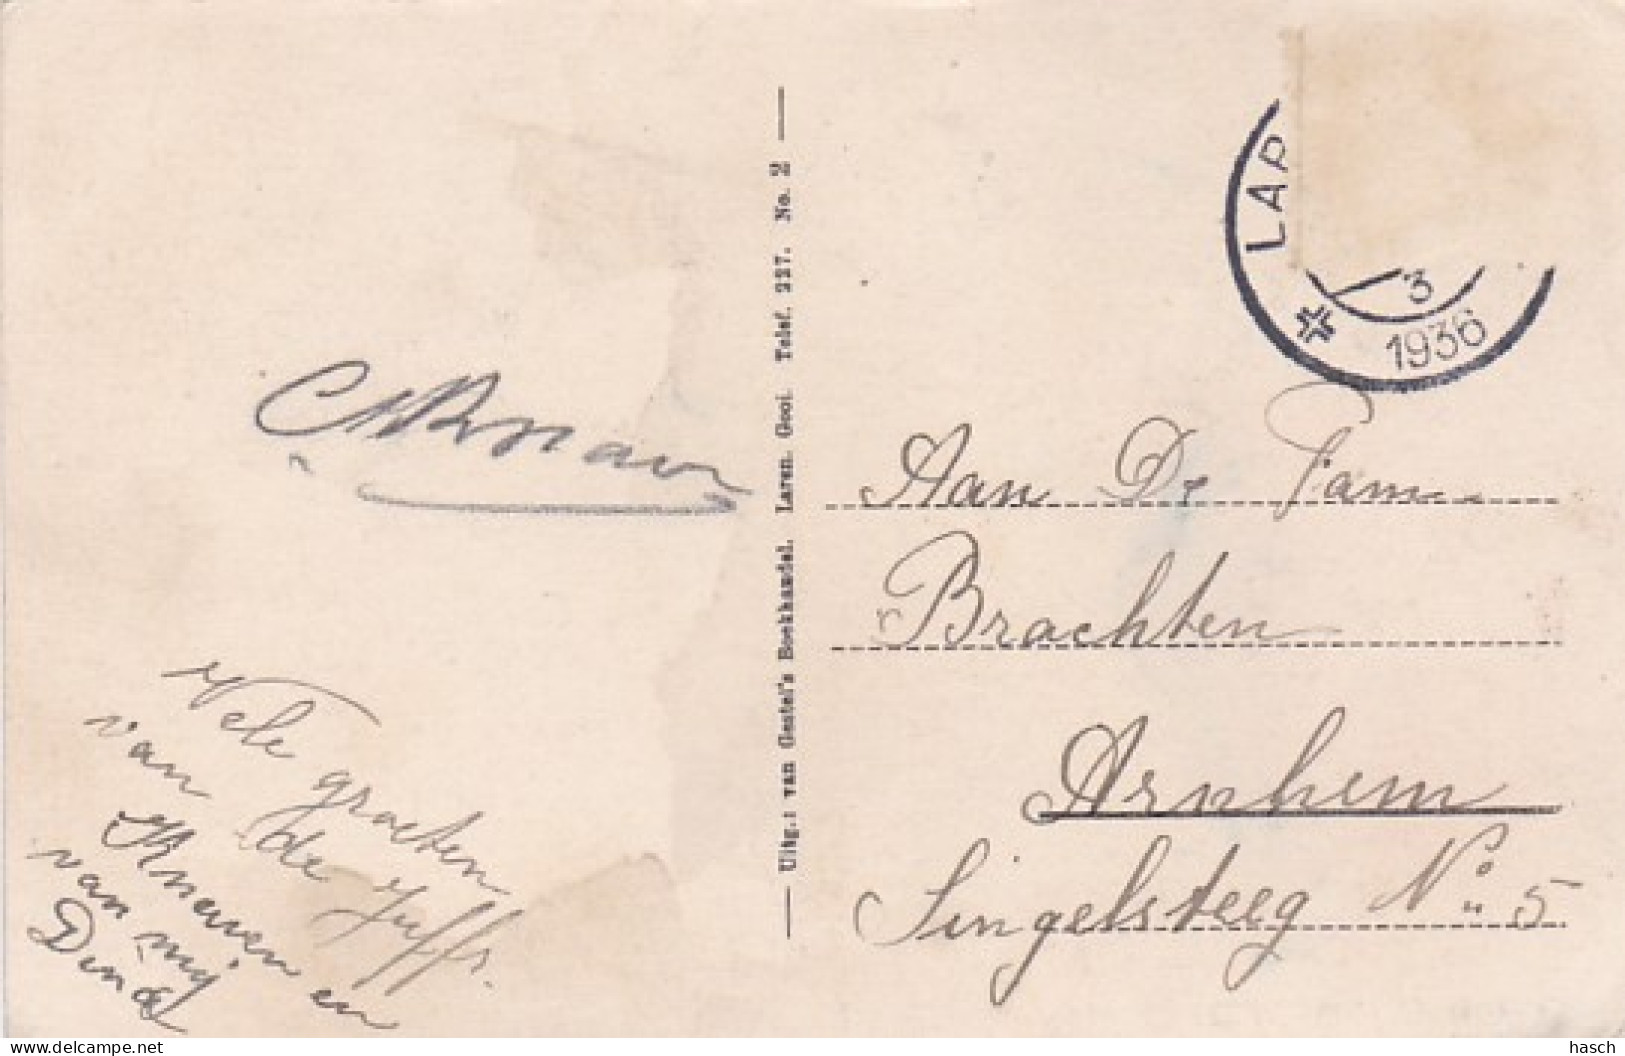 LAR
3
1936
Uitg.: van Gestel's Boekhandel. Laren. Gooi. Telef. 227. No. 2
Aan De Fam.
Brachten
Arnhem
Singelsteeg No. 5
Vele groeten
van de Juffr.
en
van mij
Dina
www.delcampe.net
hasch